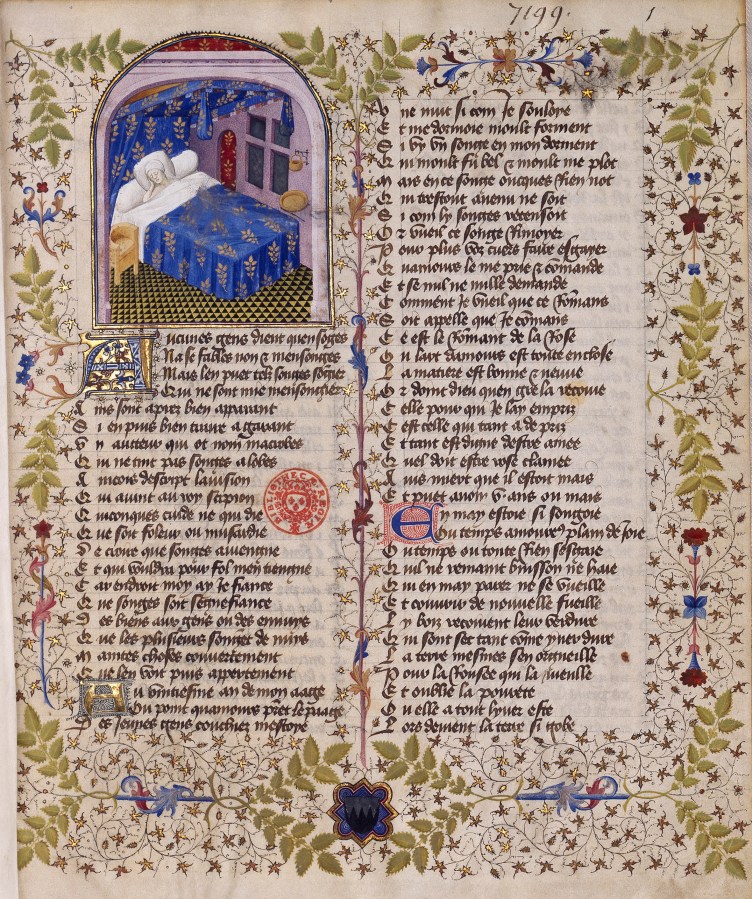 7199.
1
Aucunes gens dient quen sőges
Na se fables non & mensonges
Mais len puet telz songes sőgier
Qui ne sont mie mensongier
Ains sont aprez bien aparant
Si en puis bien traire a garant
Vn aucteur qui ot nom macrobes
Qui ne tint pas songes a lobes
Aincois descript la vision
Qui auint au roy scipion
Quiconques cuide ne qui die
Que soit foleur ou musardie
De croire que songes auiengne
Et qui vouldra pour fol mon tiengne
Car endroit moy ay Je fiance
Que songes soit segnefiance
Des biens aux gens ou des ennuys
Que les plusieurs songet de nuis
Maintes choses couuertement
Que len voit puis appertement
Au vintiesme an de mon aage
Ou point quamours prēt le paage
Des jeunes gens couchier mestoye
BIBLIOTHECAE REGIAE
Vne nuit si com Je souloye
Et me dormoie moult forment
Si vy vn songe en mon dorment
Qui moult fu bel & moult me plot
Mais en ce songe oncques Rien not
Qui trestout auenu ne soit
Si com ly songes recensoit
Or vueil ce songe Rimoyer
Pour plus voz cuers faire esgayer
Quamours le me prie & cōmande
Et se nul ne nulle demande
Comment Je vueil que ce Romans
Soit appelle que Je cōmans
Ce est le Romant de la Rose
Ou lart damours est toute enclose
La matiere est bonne & neuue
Or doint dieu quen gre la recoiue
Celle pour qui Je lay empris
Cest celle qui tant a de pris
Et tant est digne destre amee
Quel doit estre rose clamee
Auis miert que il estoit mais
Et puet auoir v. ans ou mais
En may estoie si songoie
Ou temps amoureux plain de Joie
Ou temps ou toute Rien sesgaye
Quil ne remaint buisson ne haye
Qui en may parer ne se vueille
Et couurir de nouuelle fueille
Ly bois recoiuent leur verdure
Qui sont sec tant cōme yuer dure
La terre mesmes sen orgueille
Pour la Rousee qui la mueille
Et oublie la pourete
Ou elle a tout lyuer este
Lors deuient la terre si gobe